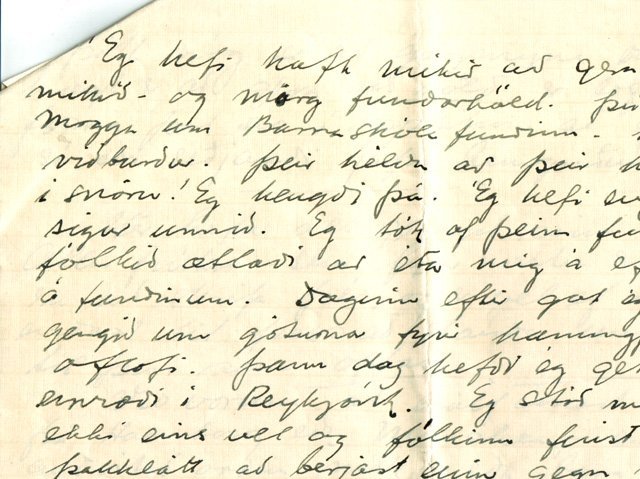 Eg hefi haft mikið að gera
mikið - og mörg fundarhöld. Þú
Mogga um Barnaskóla fundinn.
viðburður. Þeir héldu að þeir h
í snöru! Eg hengdi þá. Eg hefi
sigur unnið. Eg tók af þeim fu
fólkið ætlaði að éta mig á ef
á fundinum. Daginn eftir gat eg
gengið um götuna fyrir hamingj
ofrosi. Þann dag hefði eg get
einræði í Reykjavík. Eg stóð m
ekki eins vel og fólkinu finst
þakklátt að berjast einn gegn